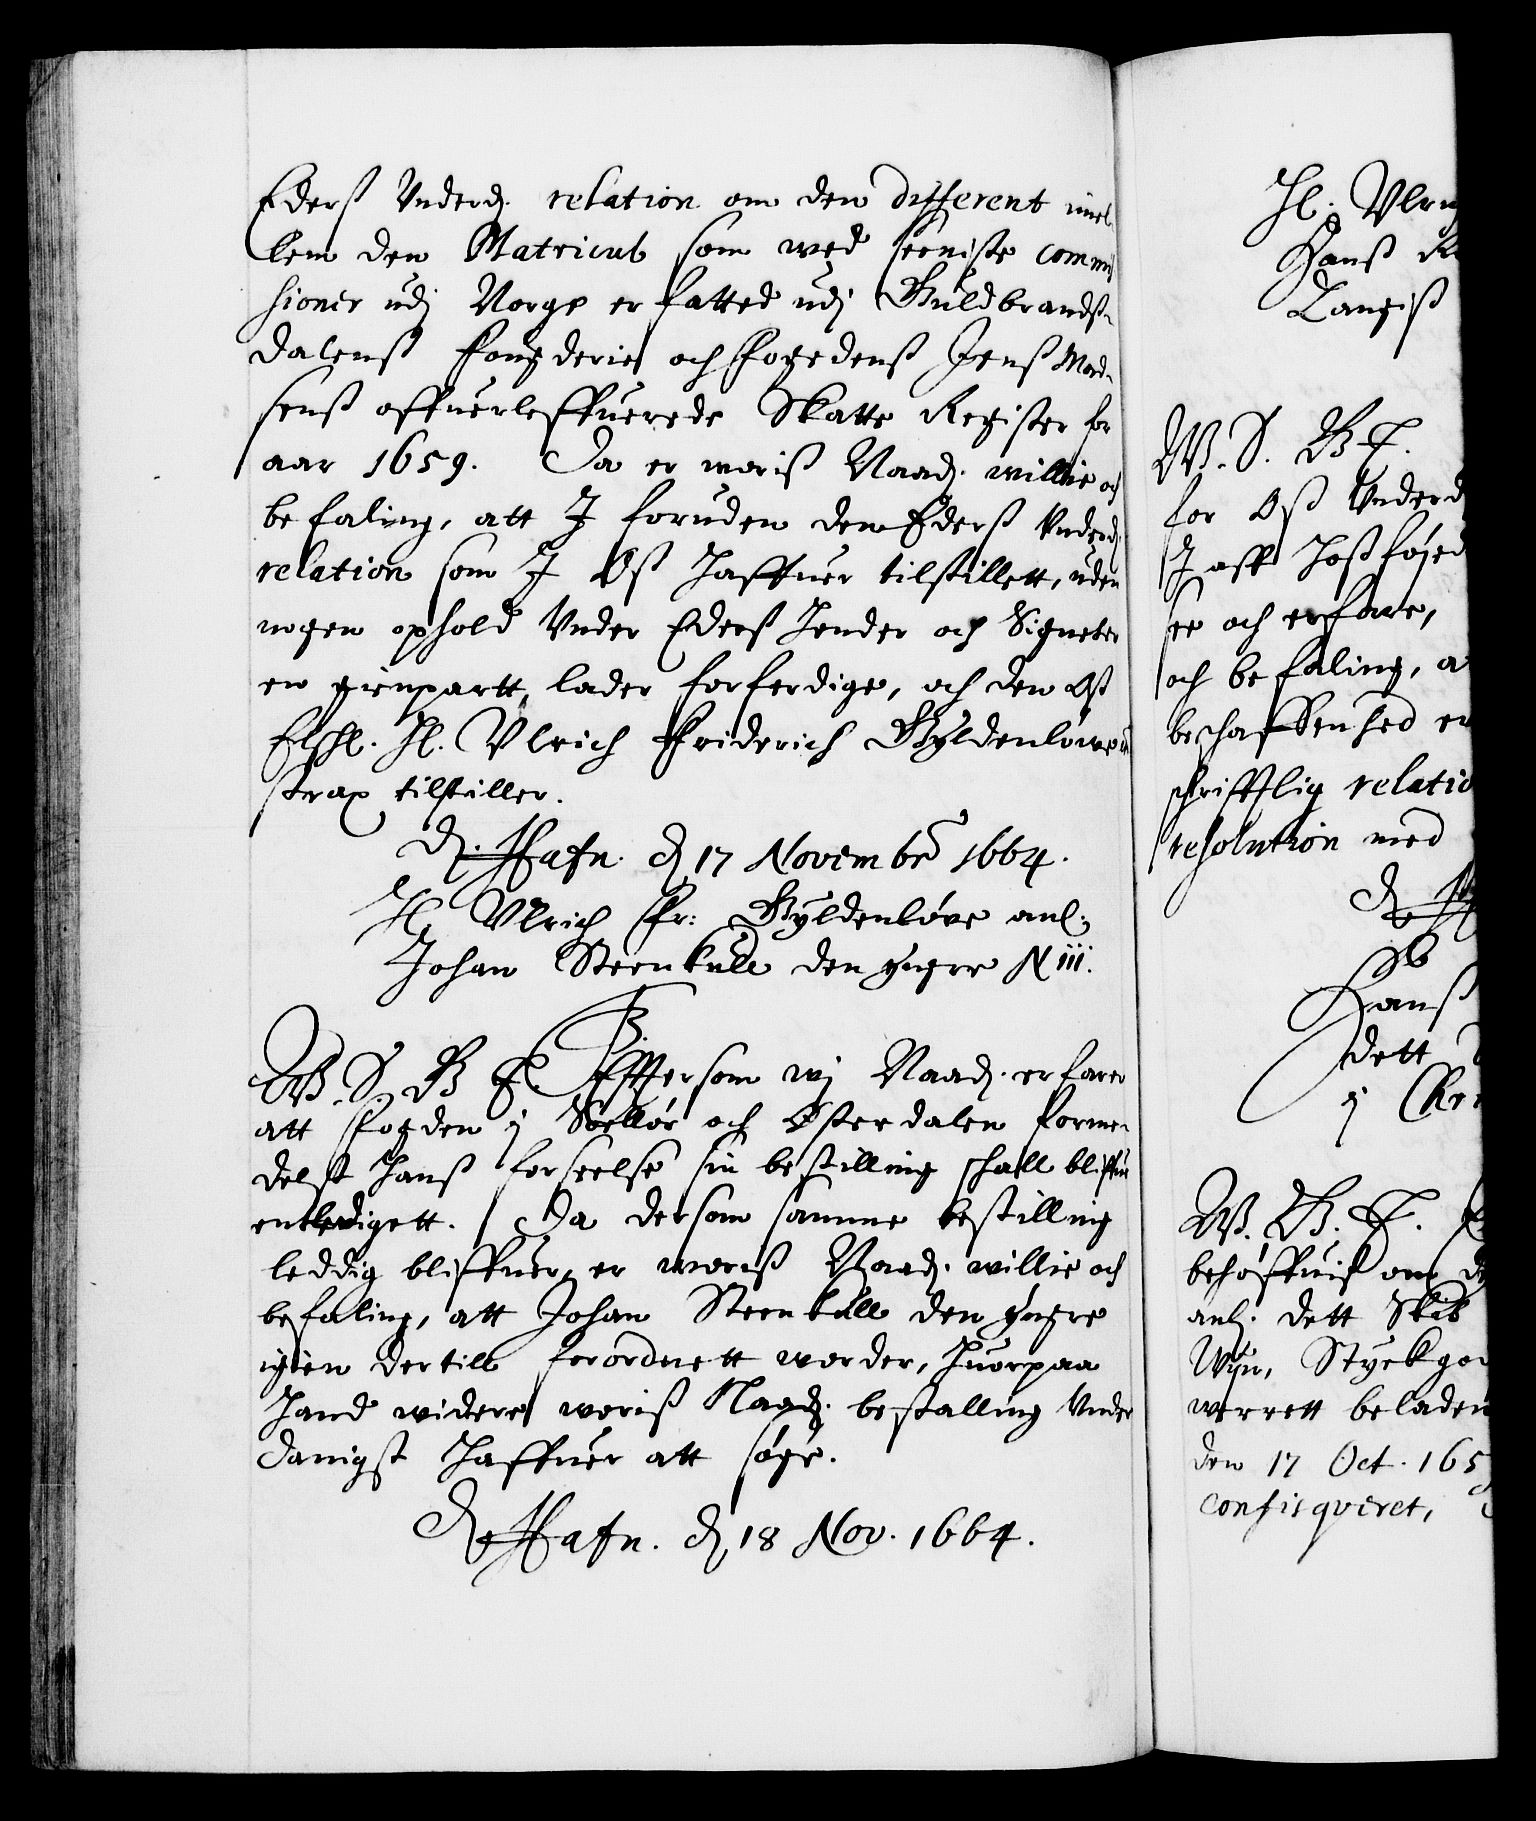 Ederß Underd. relation om den different imel
lem den Matricul som wed seeniste commis
sioner udj Norge er fatted udj Guldbrandß-
dalenß fougderie och ffogedenß Jenß Mad-
senß offuerleffuerede Skatte Register for
aar 1659. Da er woriß Naad. willie och
befaling, att I foruden den Ederß Underd.
relation som I Oß haffuer tilstillett, uden
nogen ophold Under Ederß hender och Signeter
en gienpartt, lader forferdige, och den Oß
Elschl. Hl. Ulrich Friderich Gyldenløwe
strax tilstiller.
Hafn. d. 17 Novembr 1664.
Hl. Ulrich Fr: Gyldenløve anl.
Johan Steenkull den yngre N iii.
W. S. G. T. Efftersom wj Naad. erfarer
att ffogden j Soellør och Østerdalen forme-
delst hanß forseelse sin bestilling schall bliffue
entledigett. Da dersom samme bestilling
leddig bliffuer, er woriß Naad. willie och
befaling, att Johan Steenkull den yngre
igien dertill forordnett worder, huorpaa
hand widere woriß Naad. bestalling Under
danigst haffuer att søge.
Hafn. d. 18 Nov. 1664.
Hl. Ulri
Hanß
Langiß
W. S. G. T.
for Oß Underd
I aff hoßføjed
see och erfare,
och befaling, a
beschaffenhed er
schrifftlig relatio
resolution med
Hanß
dett
j Chr
W. G. T.
behøffuiß om
anl. dett Skib
Wyn, Styckgo
werrett beladen
den 17 Oct. 165
confisqveret,